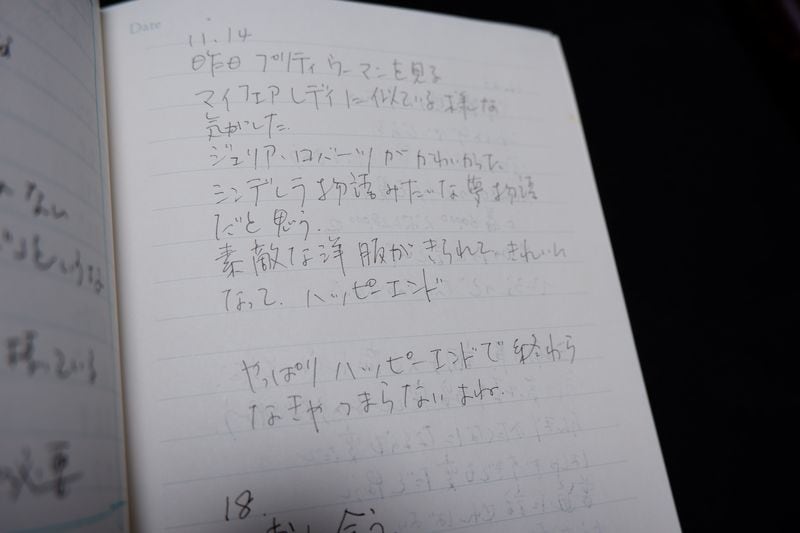 Date
11.14
昨日 プリティウーマンを見る
マイフェアレディに似ている様な
気がした.
ジュリア・ロバーツがかわいかった
シンデレラ物語みたいな夢物語
だと思う.
素敵な洋服がきられて、きれいに
なって、ハッピーエンド
やっぱりハッピーエンドで終わら
なきゃつまらないよね.
18.
ない
という
様っている
必要